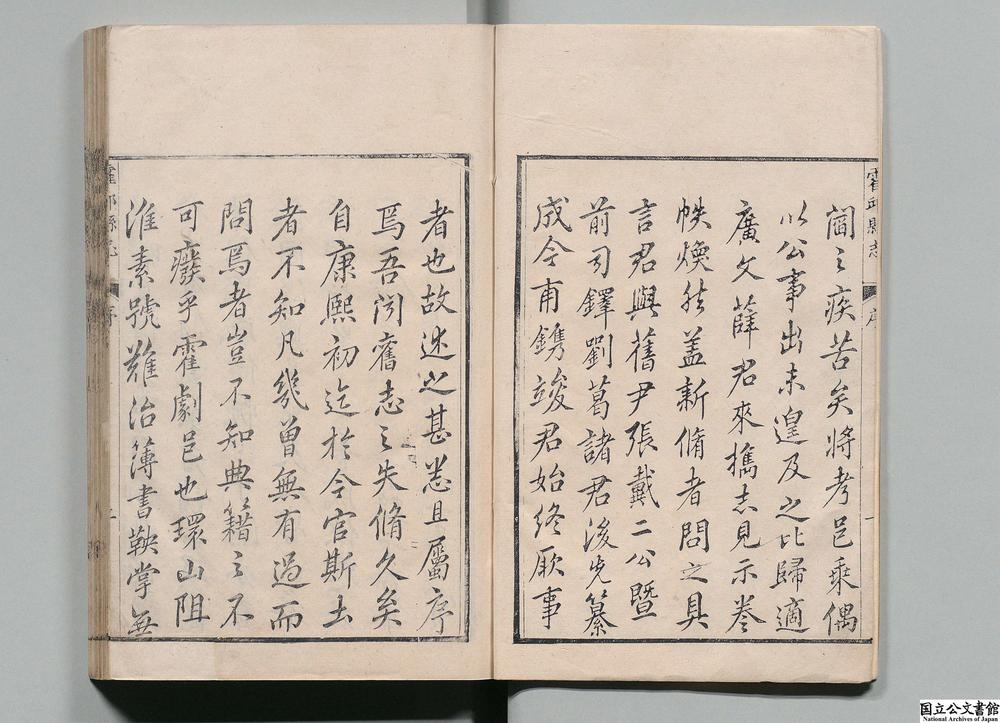 霍邱縣志
序
一
閻之疾苦矣將考邑乘偶
以公事出未遑及之比歸適
廣文薛君來攜志見示卷
帙煥然蓋新脩者問之具
言君與舊尹張戴二公暨
前司鐸劉葛諸君後先纂
成今甫鐫竣君始終厥事
者也故述之甚悉且屬序
焉吾閱舊志之失脩久矣
自康熙初迄於今官斯土
者不知凡幾曾無有過而
問焉者豈不知典籍之不
可癈乎霍劇邑也環山阻
淮素號難治薄書鞅掌無
霍邱縣志
序
国立公文書館
National Archives of Japan